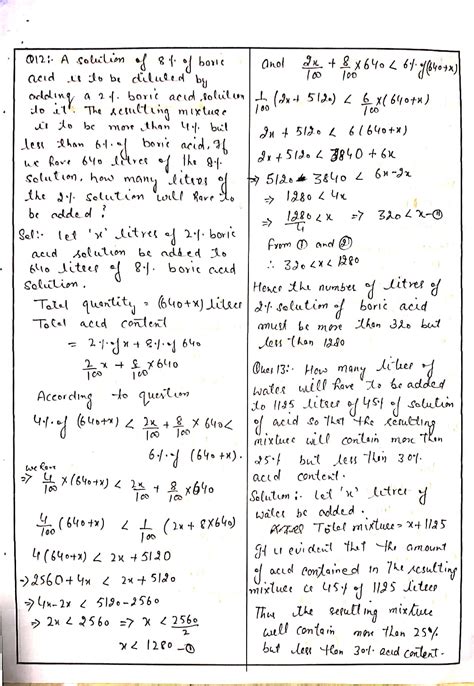 Q12:- A solution of 8% of boric
acid is to be diluted by
adding a 2% boric acid solution
to it. The resulting mixture
is to be more than 4% but
less than 6% of boric acid, If
we have 640 litres of the 8%
solution, how many litres of
the 2% solution will have to
be added?
Sol:- let 'x' litres of 2% boric
acid solution be added to
640 litres of 8% boric acid
Solution.
Total quantity = (640+x) litres
Total acid content
= 2% of x + 8% of 640
2/100 x + 8/100 × 640
According to question
4% of (640+x) < 2x/100 + 8/100 × 640 <
6% of (640+x).
we have
⇒ 4/100 × (640+x) < 2x/100 + 8/100 × 640
4/100 (640+x) < 1/100 (2x + 8×640)
4(640+x) < 2x + 5120
⇒ 2560 + 4x < 2x + 5120
⇒ 4x - 2x < 5120 - 2560
⇒ 2x < 2560 ⇒ x < 2560/2
x < 1280 - ①
and 2x/100 + 8/100 × 640 < 6% of (640+x)
1/100 (2x + 5120) < 6/100 × (640+x)
2x + 5120 < 6(640+x)
2x + 5120 < 3840 + 6x
⇒ 5120 - 3840 < 6x - 2x
⇒ 1280 < 4x
⇒ 1280/4 < x ⇒ 320 < x - ②
From ① and ②
∴ 320 < x < 1280
Hence the number of litres of
2% solution of boric acid
must be more than 320 but
less than 1280
Ques 13:- How many litres of
water will have to be added
to 1125 litres of 45% of solution
of acid so that the resulting
mixture will contain more than
25% but less than 30%
acid content.
Solution:- let 'x' litres of
water be added.
Total mixture = x + 1125
It is evident that the amount
of acid contained in the resulting
mixture is 45% of 1125 litres
Thus the resulting mixture
will contain more than 25%
but less than 30% acid content.